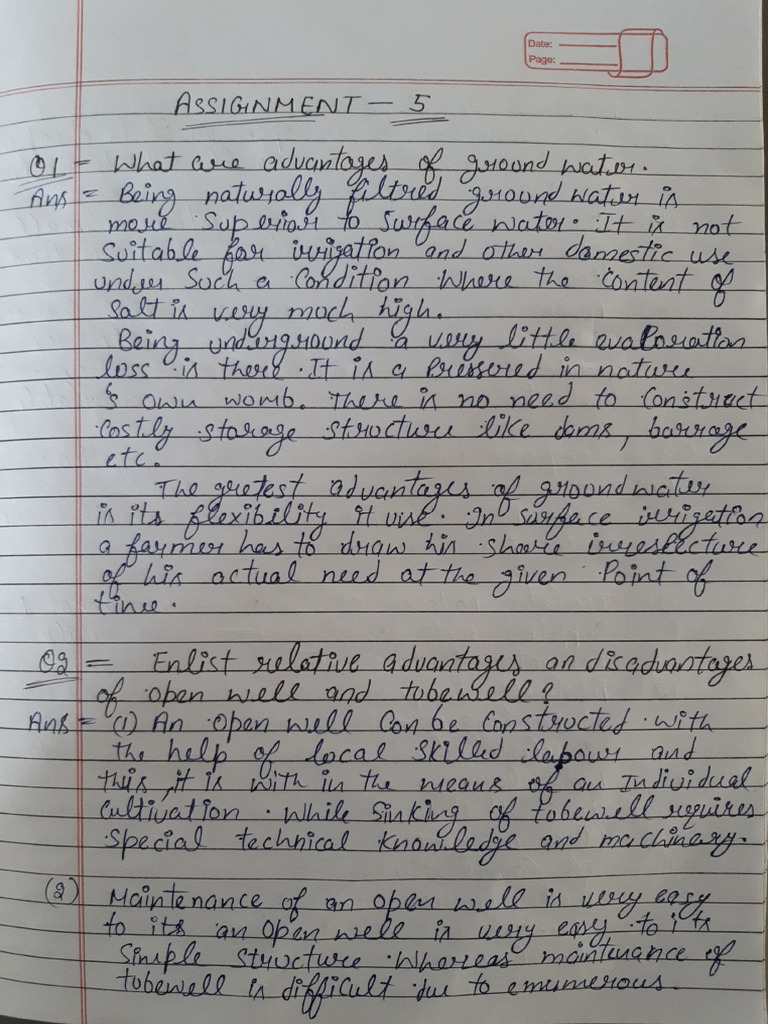 Date:
Page:
ASSIGNMENT - 5
Q1 = What are advantages of ground water.
Ans = Being naturally filtred ground water is
more Superior to Surface water. It is not
Suitable for irrigation and other domestic use
under Such a Condition Where the Content of
Salt is very much high.
Being underground a very little evaporation
loss is there. It is a Pressered in nature
's own womb. There is no need to Construct
Costly storage structure like dams, barrage
etc.
The gretest advantages of ground water
is its flexibility it use. In surface irrigation
a farmer has to draw his share irrespecture
of his actual need at the given Point of
time.
Q2 = Enlist relative advantages an disadvantages
of open well and tubewell?
Ans = (1) An open well Can be Constructed with
the help of local Skilled labour and
this, it is with in the means of an Individual
Cultivation. While Sinking of tubewell requires
Special technical Knowledge and machinary.
(2) Maintenance of an open well is very easy
to its an open well is very easy to its
Simple Structure. Whereas maintenance of
tubewell is difficult due to emumerous.